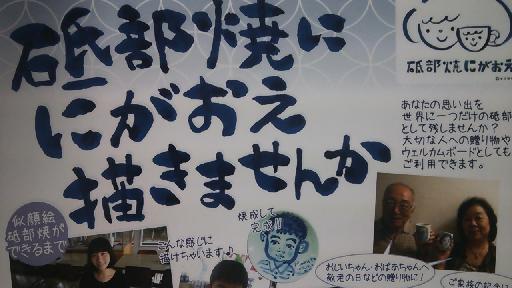 砥部焼に
にがおえ
描きませんか
砥部焼にがおえ
あなたの思い出を
世界に一つだけの砥部
として残しませんか?
大切な人への贈り物や
ウェルカムボードとしても
ご利用できます。
似顔絵
砥部焼が
できるまで
こんな感じに
描けちゃいます♪
焼成して
完成!!
おじいちゃん・おばあちゃんへ
敬老の日などの贈り物に!
ご家族の記念に